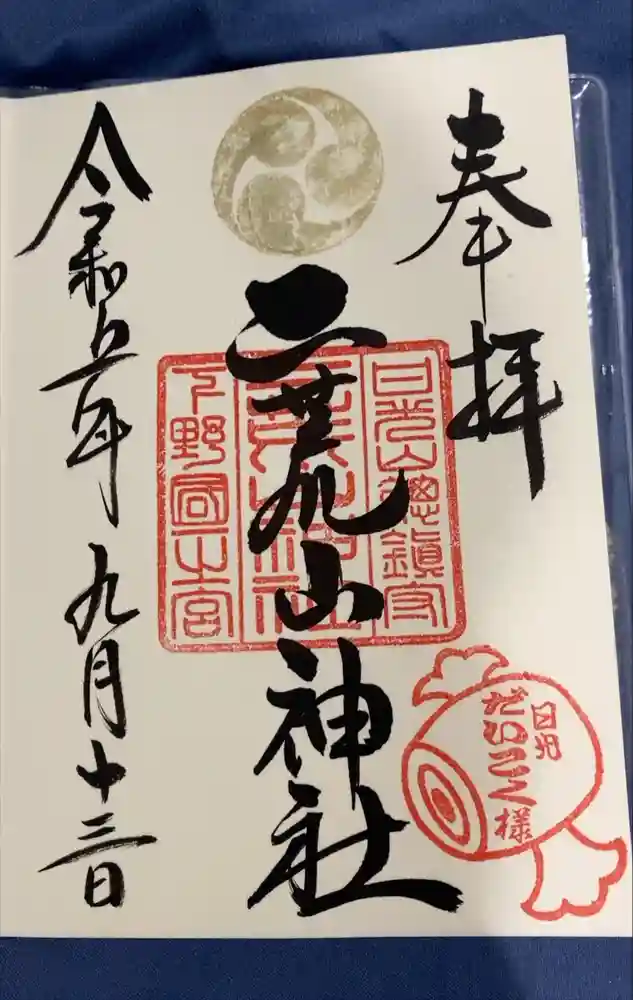 奉拝
日光山總鎮守
二荒山神社
二荒山神社
下野國一之宮
日光
だいこく様
令和五年九月十三日